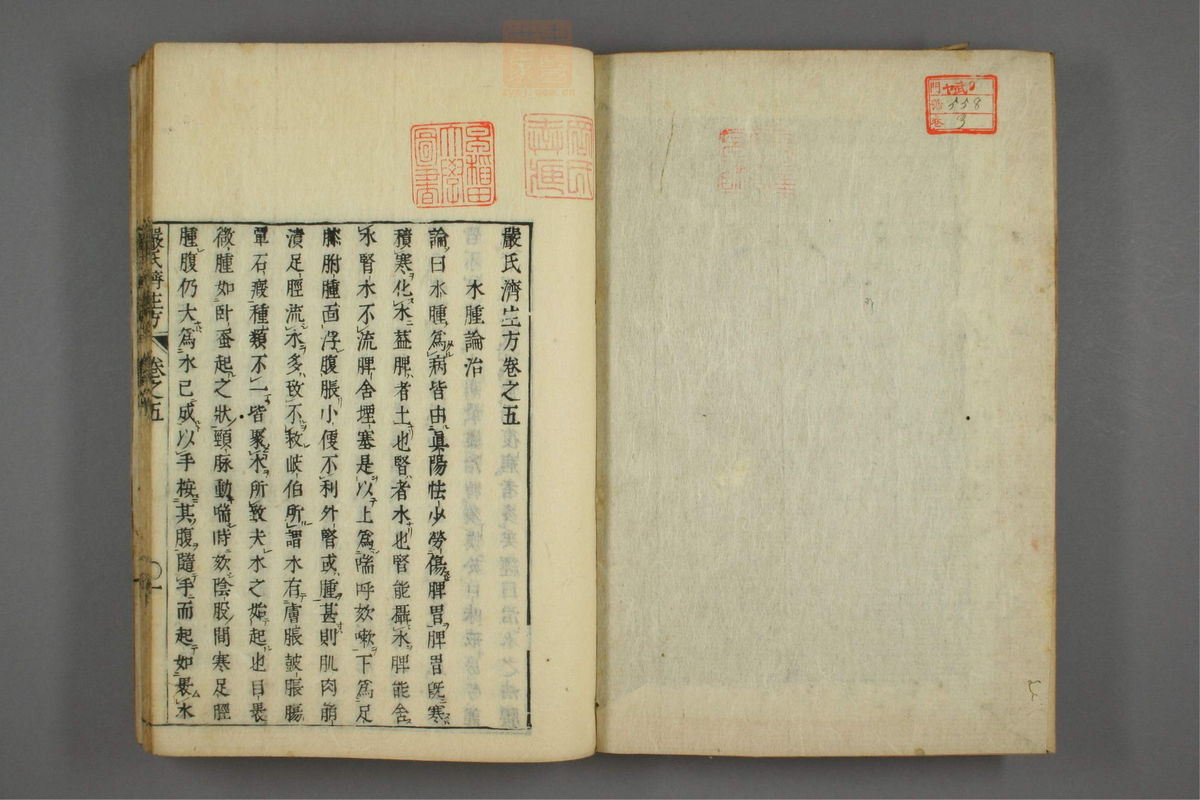 嚴氏濟生方卷之五
水腫論治
論曰水腫爲病皆由眞陽怯少勞傷脾胃脾胃旣寒
積寒化水葢脾者土也腎者水也腎能攝水脾能舍
水腎水不流脾舍堙塞是以上爲喘呼欬嗽下爲足
膝胕腫面浮腹脹小便不利外腎或腫甚則肌肉崩
潰足脛流水多致不救岐伯所謂水有膚脹皷脹腸
覃石瘕種類不一皆聚水所致夫水之始起也目裹
微腫如卧蚕起之狀頸脉動喘時欬陰股間寒足脛
腫腹仍大爲水已成以手按其腹隨手而起如裹水
嚴氏濟生方
卷之五
一
早稻田大學圖書
門
號 558
卷 9